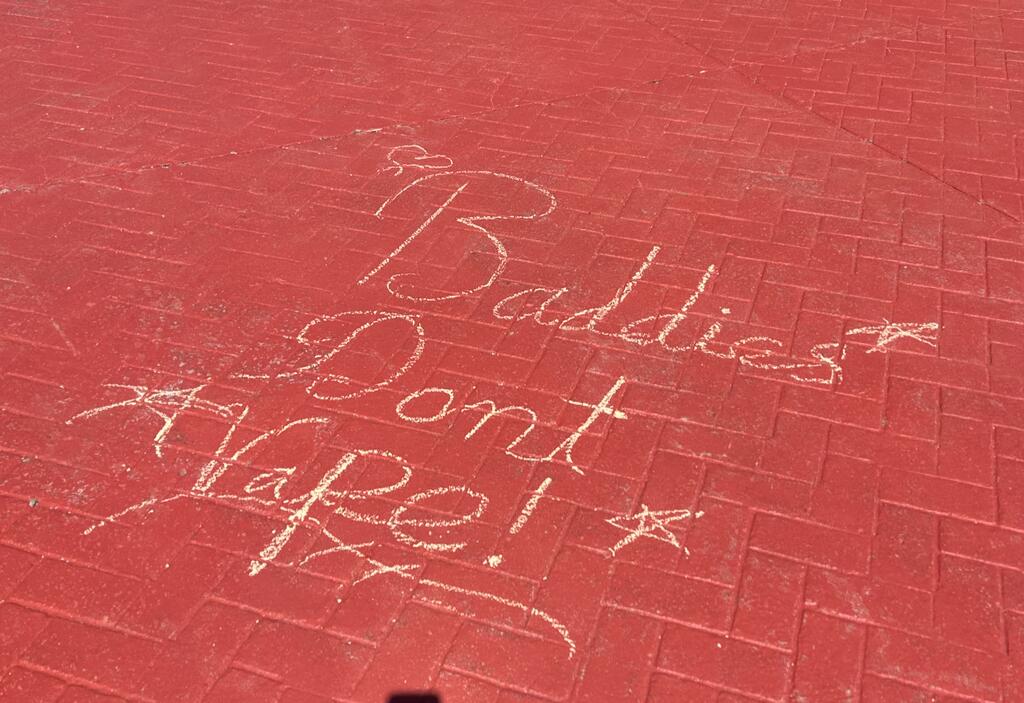 Baddies
Dont
Vape!